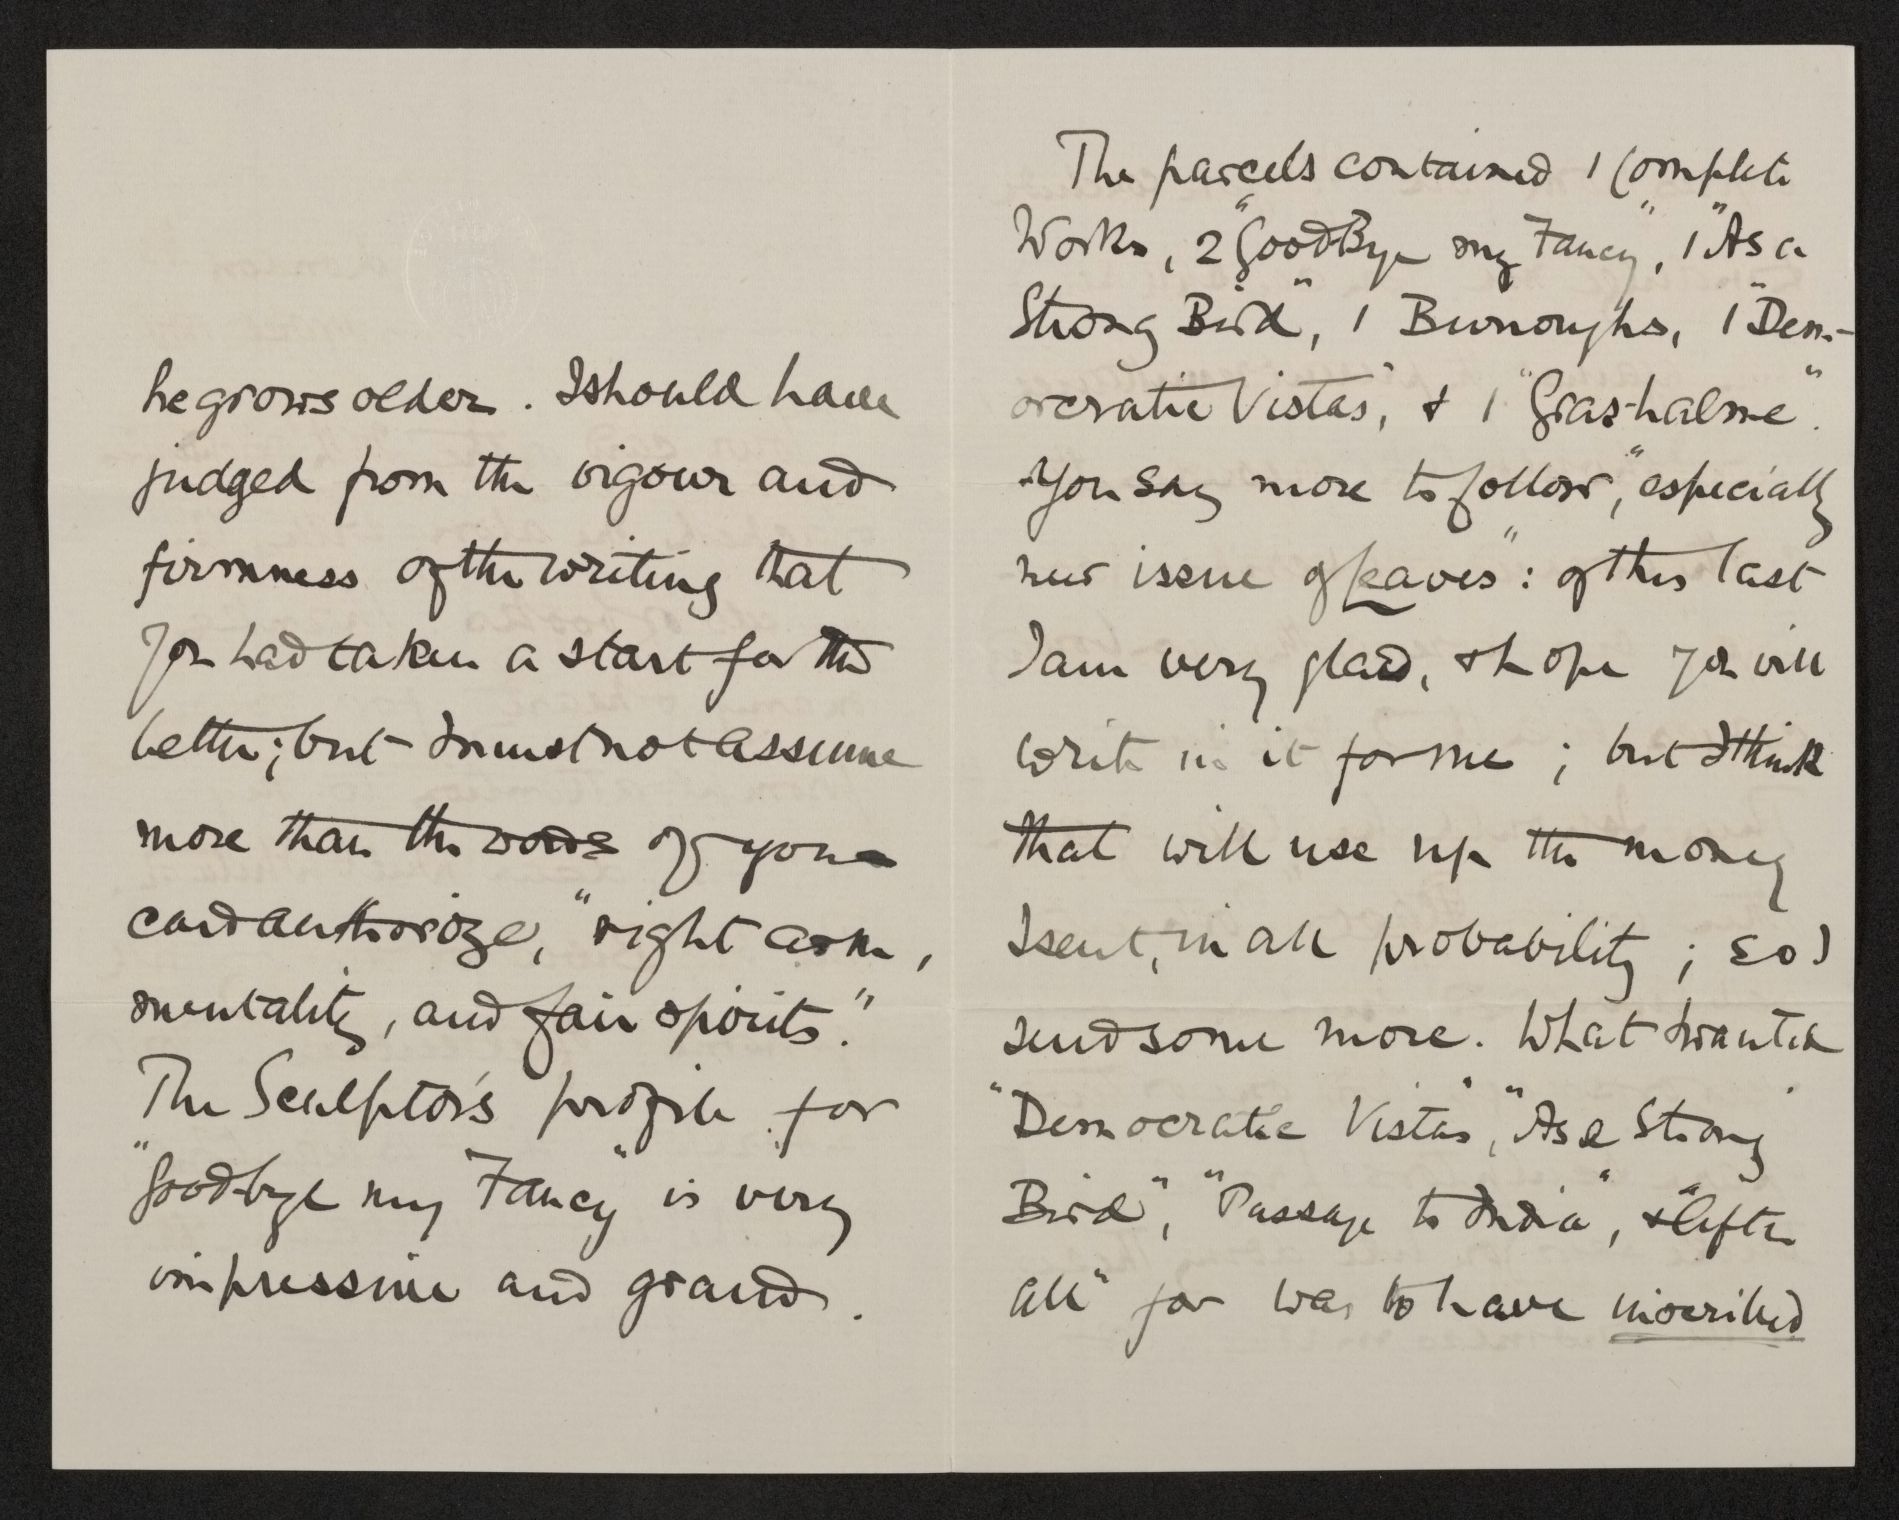 he grows older. I should have
judged from the vigour and
firmness of the writing that
you had taken a start for the
better; but I must not assume
more than the words of your
card authorize, "right arm,
mentality, and fair spirits."
The Sculptor's profile for
"Good-bye my Fancy" is very
impressive and grand.
The parcels contained 1 Complete
Works, 2 "GoodBye my Fancy", 1 "As a
Strong Bird", 1 Burroughs, 1 "Dem-
ocratic Vistas", & 1 "Grashalme".
You say more to follow, "especially
new issue of Leaves": of this last
I am very glad, & hope you will
write in it for me; but I think
that will use up the money
I sent, in all probability; so I
send some more. What I wanted
"Democratic Vistas", "As a Strong
Bird", "Passage to India", & "After
all" for was to have inscribed